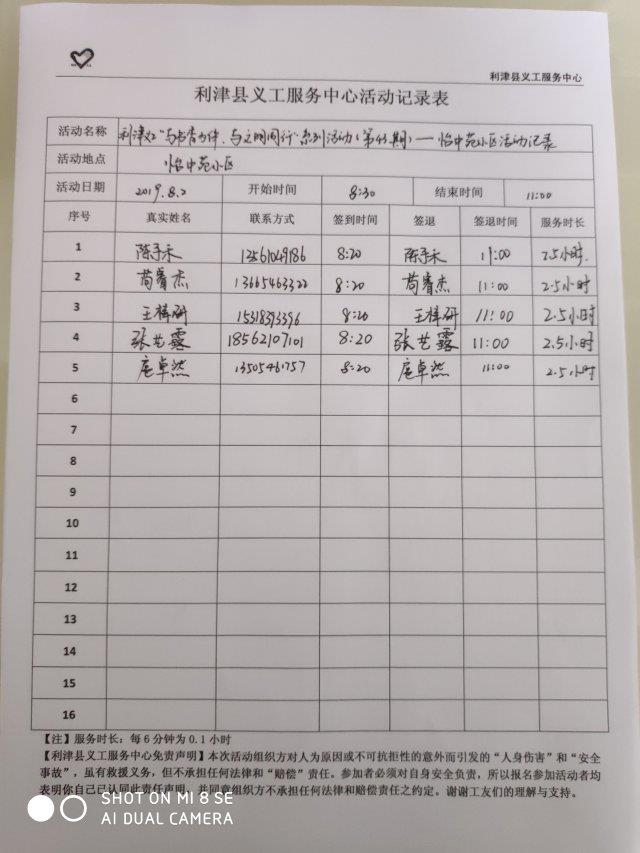 利津县义工服务中心
利津县义工服务中心活动记录表
活动名称 利津义工"与书香为伴、与文明同行"系列活动(第43期)——怡中苑小区活动记录
活动地点 怡中苑小区
活动日期 2019.8.2 开始时间 8:30 结束时间 11:00
序号 真实姓名 联系方式 签到时间 签退 签退时间 服务时长
1 陈予禾 13561049186 8:20 陈予禾 11:00 2.5小时.
2 苟睿杰 13665463322 8:20 苟睿杰 11:00 2.5小时
3 王梓研 15318393396 8:20 王梓研 11:00 2.5小时
4 张艺露 18562107101 8:20 张艺露 11:00 2.5小时
5 扈卓然 13505461757 8:20 扈卓然 11:00 2.5小时
6
7
8
9
10
11
12
13
14
15
16
【注】服务时长:每6分钟为0.1小时
【利津县义工服务中心免责声明】本次活动组织方对人为原因或不可抗拒性的意外而引发的"人身伤害"和"安全
事故",虽有救援义务,但不承担任何法律和"赔偿"责任。参加者必须对自身安全负责,所以报名参加活动者均
表明你自己已认同此责任声明,并同意组织方不承担任何法律和赔偿责任之约定。谢谢工友们的理解与支持。
SHOT ON MI 8 SE
AI DUAL CAMERA